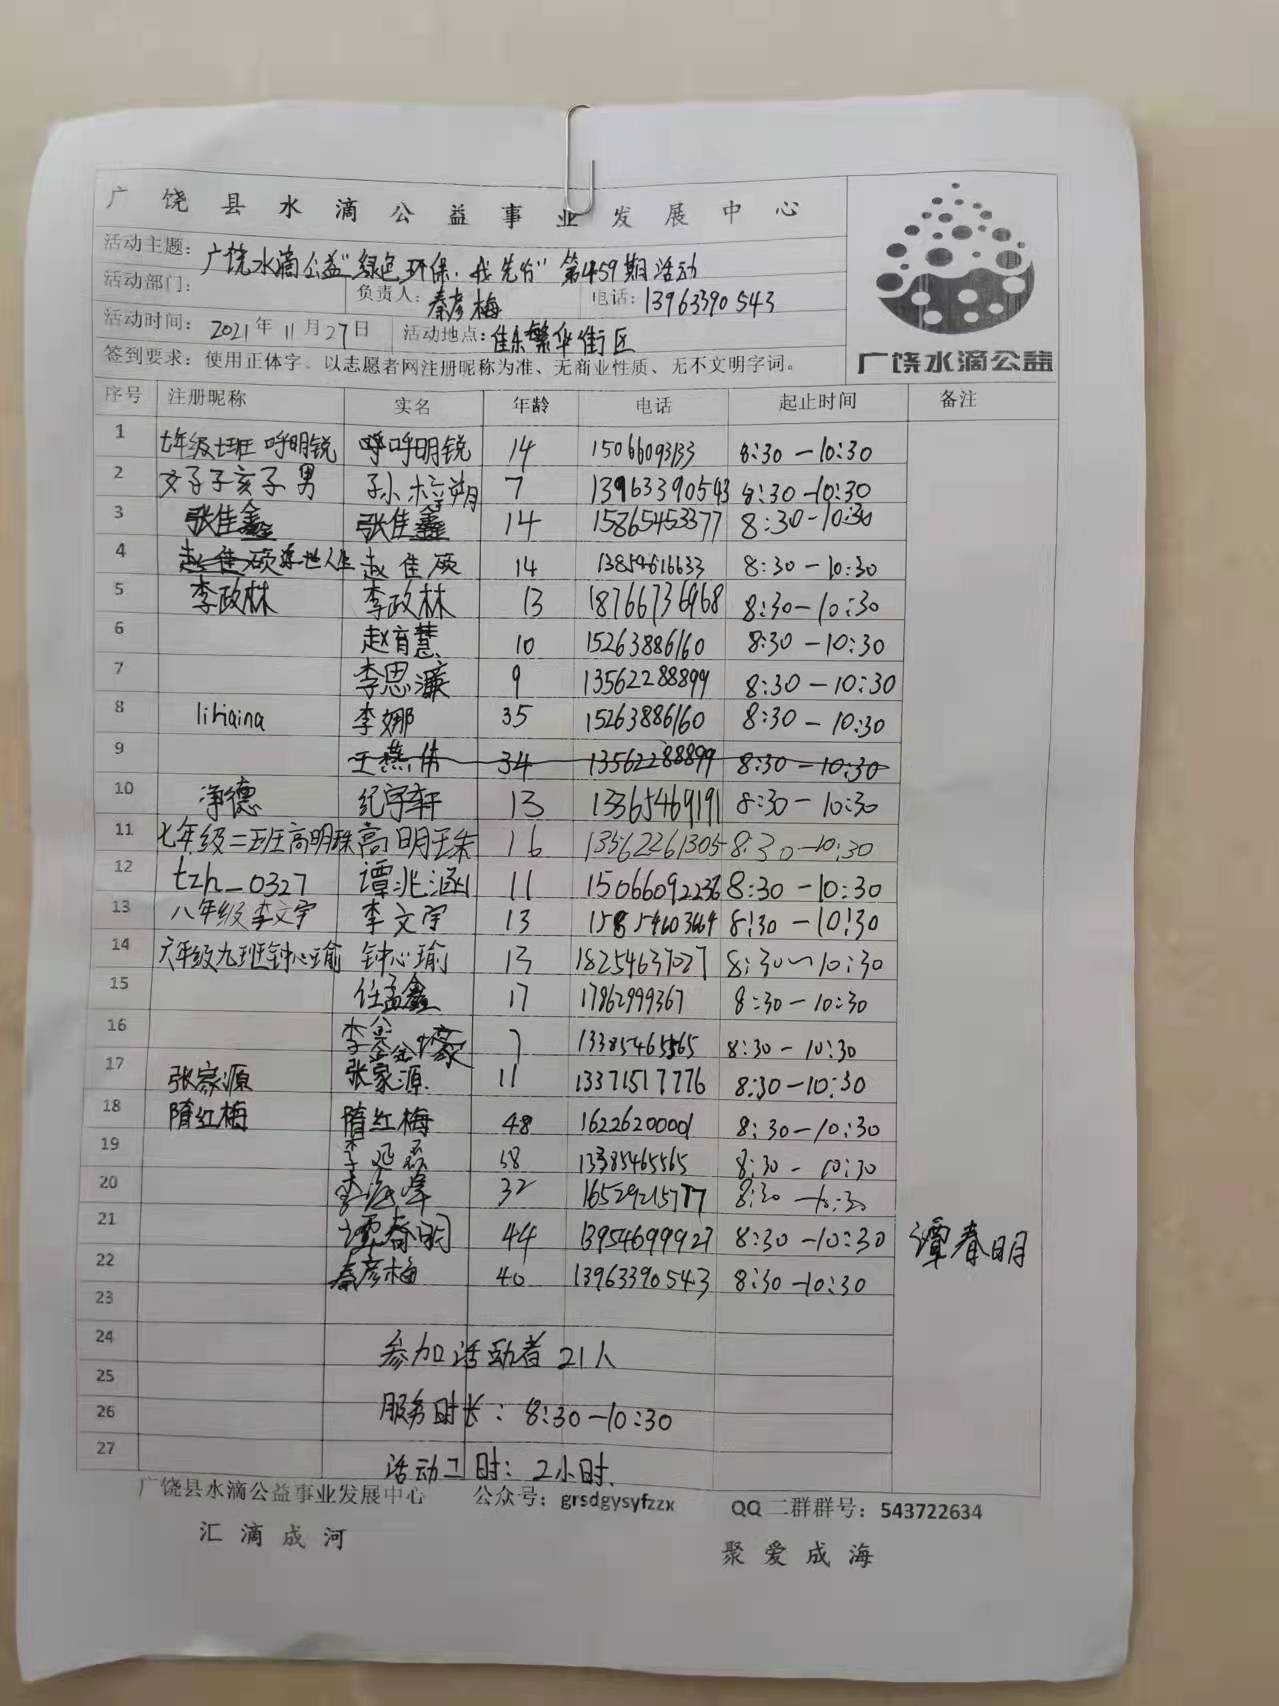 广饶县水滴公益事业发展中心
活动主题：广饶水滴公益"绿色环保.我先行"第459期活动
活动部门： 负责人：秦彦梅 电话：13963390543
活动时间：2021年11月27日 活动地点：佳乐繁华街区
签到要求：使用正体字、以志愿者网注册昵称为准、无商业性质、无不文明字词。
广饶水滴公益
序号 注册昵称 实名 年龄 电话 起止时间 备注
1 七年级七班 呼明锐 呼明锐 14 15066093133 8:30-10:30
2 文子子孩子 男 7 13963390543 8:30-10:30
3 张佳鑫 张佳鑫 14 15865453377 8:30-10:30
4 赵佳硕 赵佳硕 14 13854616633 8:30-10:30
5 李政林 李政林 13 18766736968 8:30-10:30
6 赵育慧 10 15263886160 8:30-10:30
7 李思濂 9 13562288899 8:30-10:30
8 lihaina 李娜 35 15263886160 8:30-10:30
9 王燕伟 34 13562288899 8:30-10:30
10 净德 纪宇轩 13 13365469191 8:30-10:30
11 七年级二班高明珠 高明珠 16 13562261305 8:30-10:30
12 tzh_0327 谭兆涵 11 15066092236 8:30-10:30
13 八年级李文宇 李文宇 13 15854603664 8:30-10:30
14 六年级九班钟心瑜 钟心瑜 13 18254637027 8:30~10:30
15 任孟鑫 17 17862999367 8:30-10:30
16 李 7 13385465565 8:30-10:30
17 张家源 张家源 11 13371517776 8:30-10:30
18 隋红梅 隋红梅 48 1622620001 8:30-10:30
19 李延磊 38 13385465565 8:30-10:30
20 李海峰 32 16529215777 8:30-10:30
21 谭春明 44 13954699927 8:30-10:30 谭春明
22 秦彦梅 40 13963390543 8:30-10:30
23
24 参加活动者21人
25
26 服务时长：8:30-10:30
27 活动工时：2小时.
广饶县水滴公益事业发展中心 公众号：grsdgysyfzzx QQ二群群号：543722634
汇滴成河 聚爱成海